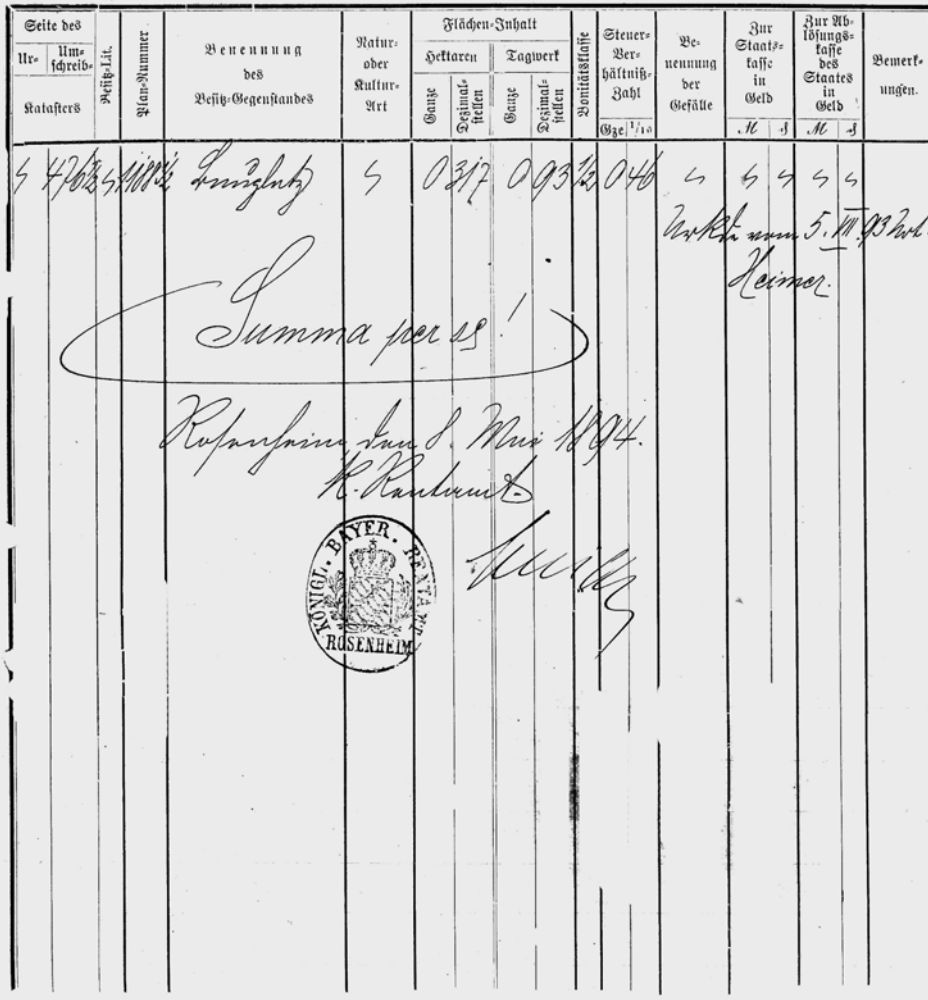 Seite des
Ur-
Um-
schreib-
Katasters
Besitz-Lit.
Plan-Nummer
Benennung
des
Besitz-Gegenstandes
Natur-
oder
Kultur-
Art
Flächen-Inhalt
Hektaren
Tagwerk
Ganze
Dezimal-
stellen
Ganze
Dezimal-
stellen
Bonitätsklasse
Steuer-
Ver-
hältniß-
Zahl
Gze 1/10
Be-
nennung
der
Gefälle
Zur
Staats-
kasse
in
Geld
M ₰
Zur Ab-
lösungs-
kasse
des
Staates
in
Geld
M ₰
Bemerk-
ungen.
476½ 1188½ Bauplatz 0 317 0 93 ½ 0 46
Urkde vom 5. VIII. 93 Not.
Heimer.
Summa per se!
Rosenheim, den 8. Mai 1894.
K. Rentamt.
KÖNIGL. BAYER. RENTAMT
ROSENHEIM